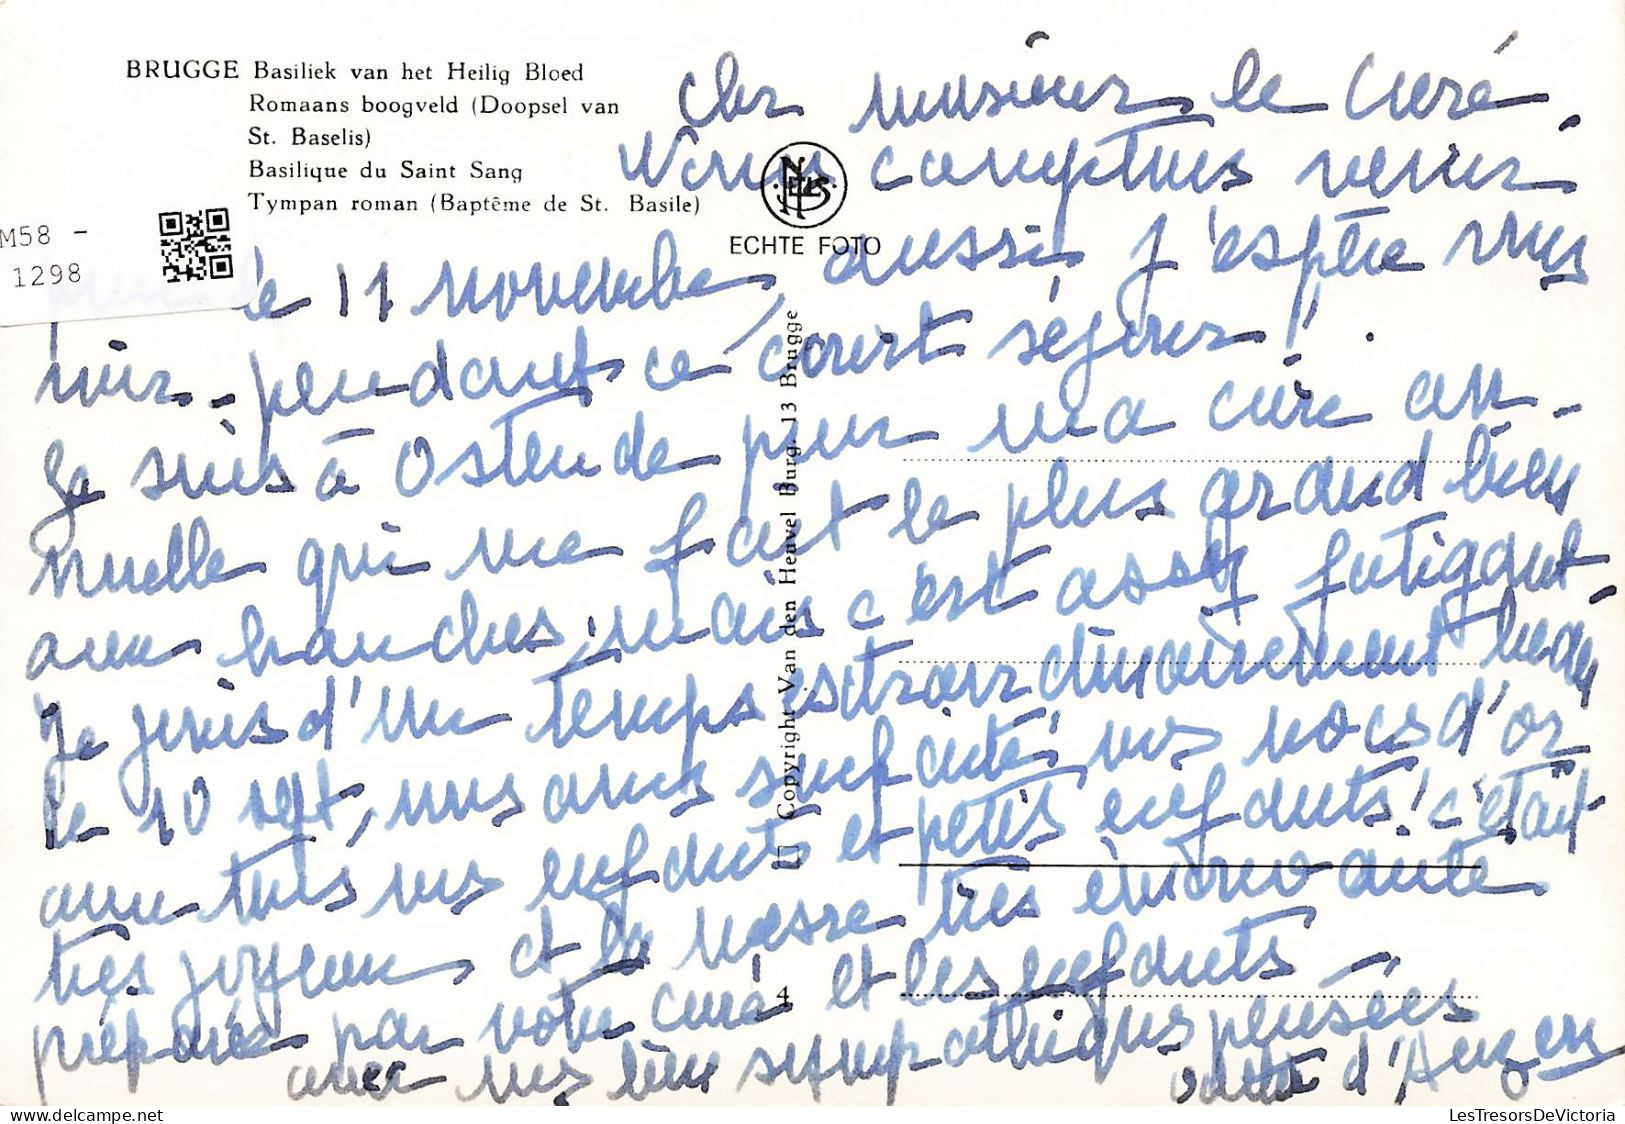 BRUGGE Basiliek van het Heilig Bloed
Romaans boogveld (Doopsel van
St. Baselis)
Basilique du Saint Sang
Tympan roman (Baptême de St. Basile)
M58 -
1298
NELS
ECHTE FOTO
Copyright Van den Heuvel Burg. 13 Brugge
4
Cher monsieur le Curé.
Nous comptons venir
le 11 novembre, aussi j'espère vous
voir - pendant ce court séjour!
Je suis à Ostende pour ma cure an-
nuelle qui me fait le plus grand bien
aux hanches, mais c'est assez fatigant.
Je jouis d'un temps extraordinairement beau
le 10 sept, nous avons souhaité nos noces d'or
avec tous nos enfants et petits enfants! c'était
très joyeux et la messe très émouvante
préparée par votre curé et les enfants -
avec nos bien sympathiques pensées
d'
LesTresorsDeVictoria
www.delcampe.net